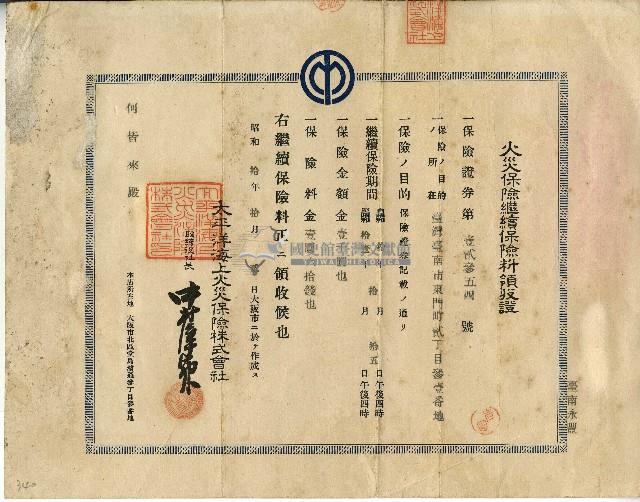 火災保險繼續保險料領收證
一保險證券第 壹貳參五四 號
一保險ノ目的ノ所在 臺灣臺南市東門町貳丁目參壹番地
一保險ノ目的 保險證券記載ノ通リ
一繼續保險期間
拾月 拾五日午後四時
日午後四時
一保險金額金壹
一保險料金壹 拾錢也
右繼續保險料正ニ領收候也
昭和拾年拾月 日大阪市ニ於テ作成ス
大平洋海上火災保險株式會社
取締役社長
本店所在地 大阪市北區堂島濱通壹丁目參番地
何皆來殿
臺南永豐
國史館臺灣文獻館
TAIWAN HISTORICA
340